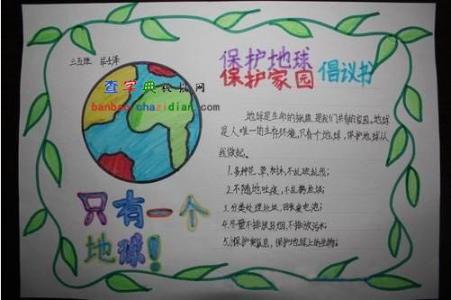 保护地球
保护家园 倡议书
查字典
banbao.chazidian.com
地球是生命的摇篮,是我们共有的家园,地球
是人唯一的生存环境,只有个地球,保护地球从
我做起。
1.多种花、草、树木,不乱砍乱伐;
2.不随地吐痰,不乱扔垃圾;
3.分类处理垃圾,回收废电池;
4.尽量不排放废烟,不排放污水;
5.保护,保护地球上的生物;
只有一个
地球!